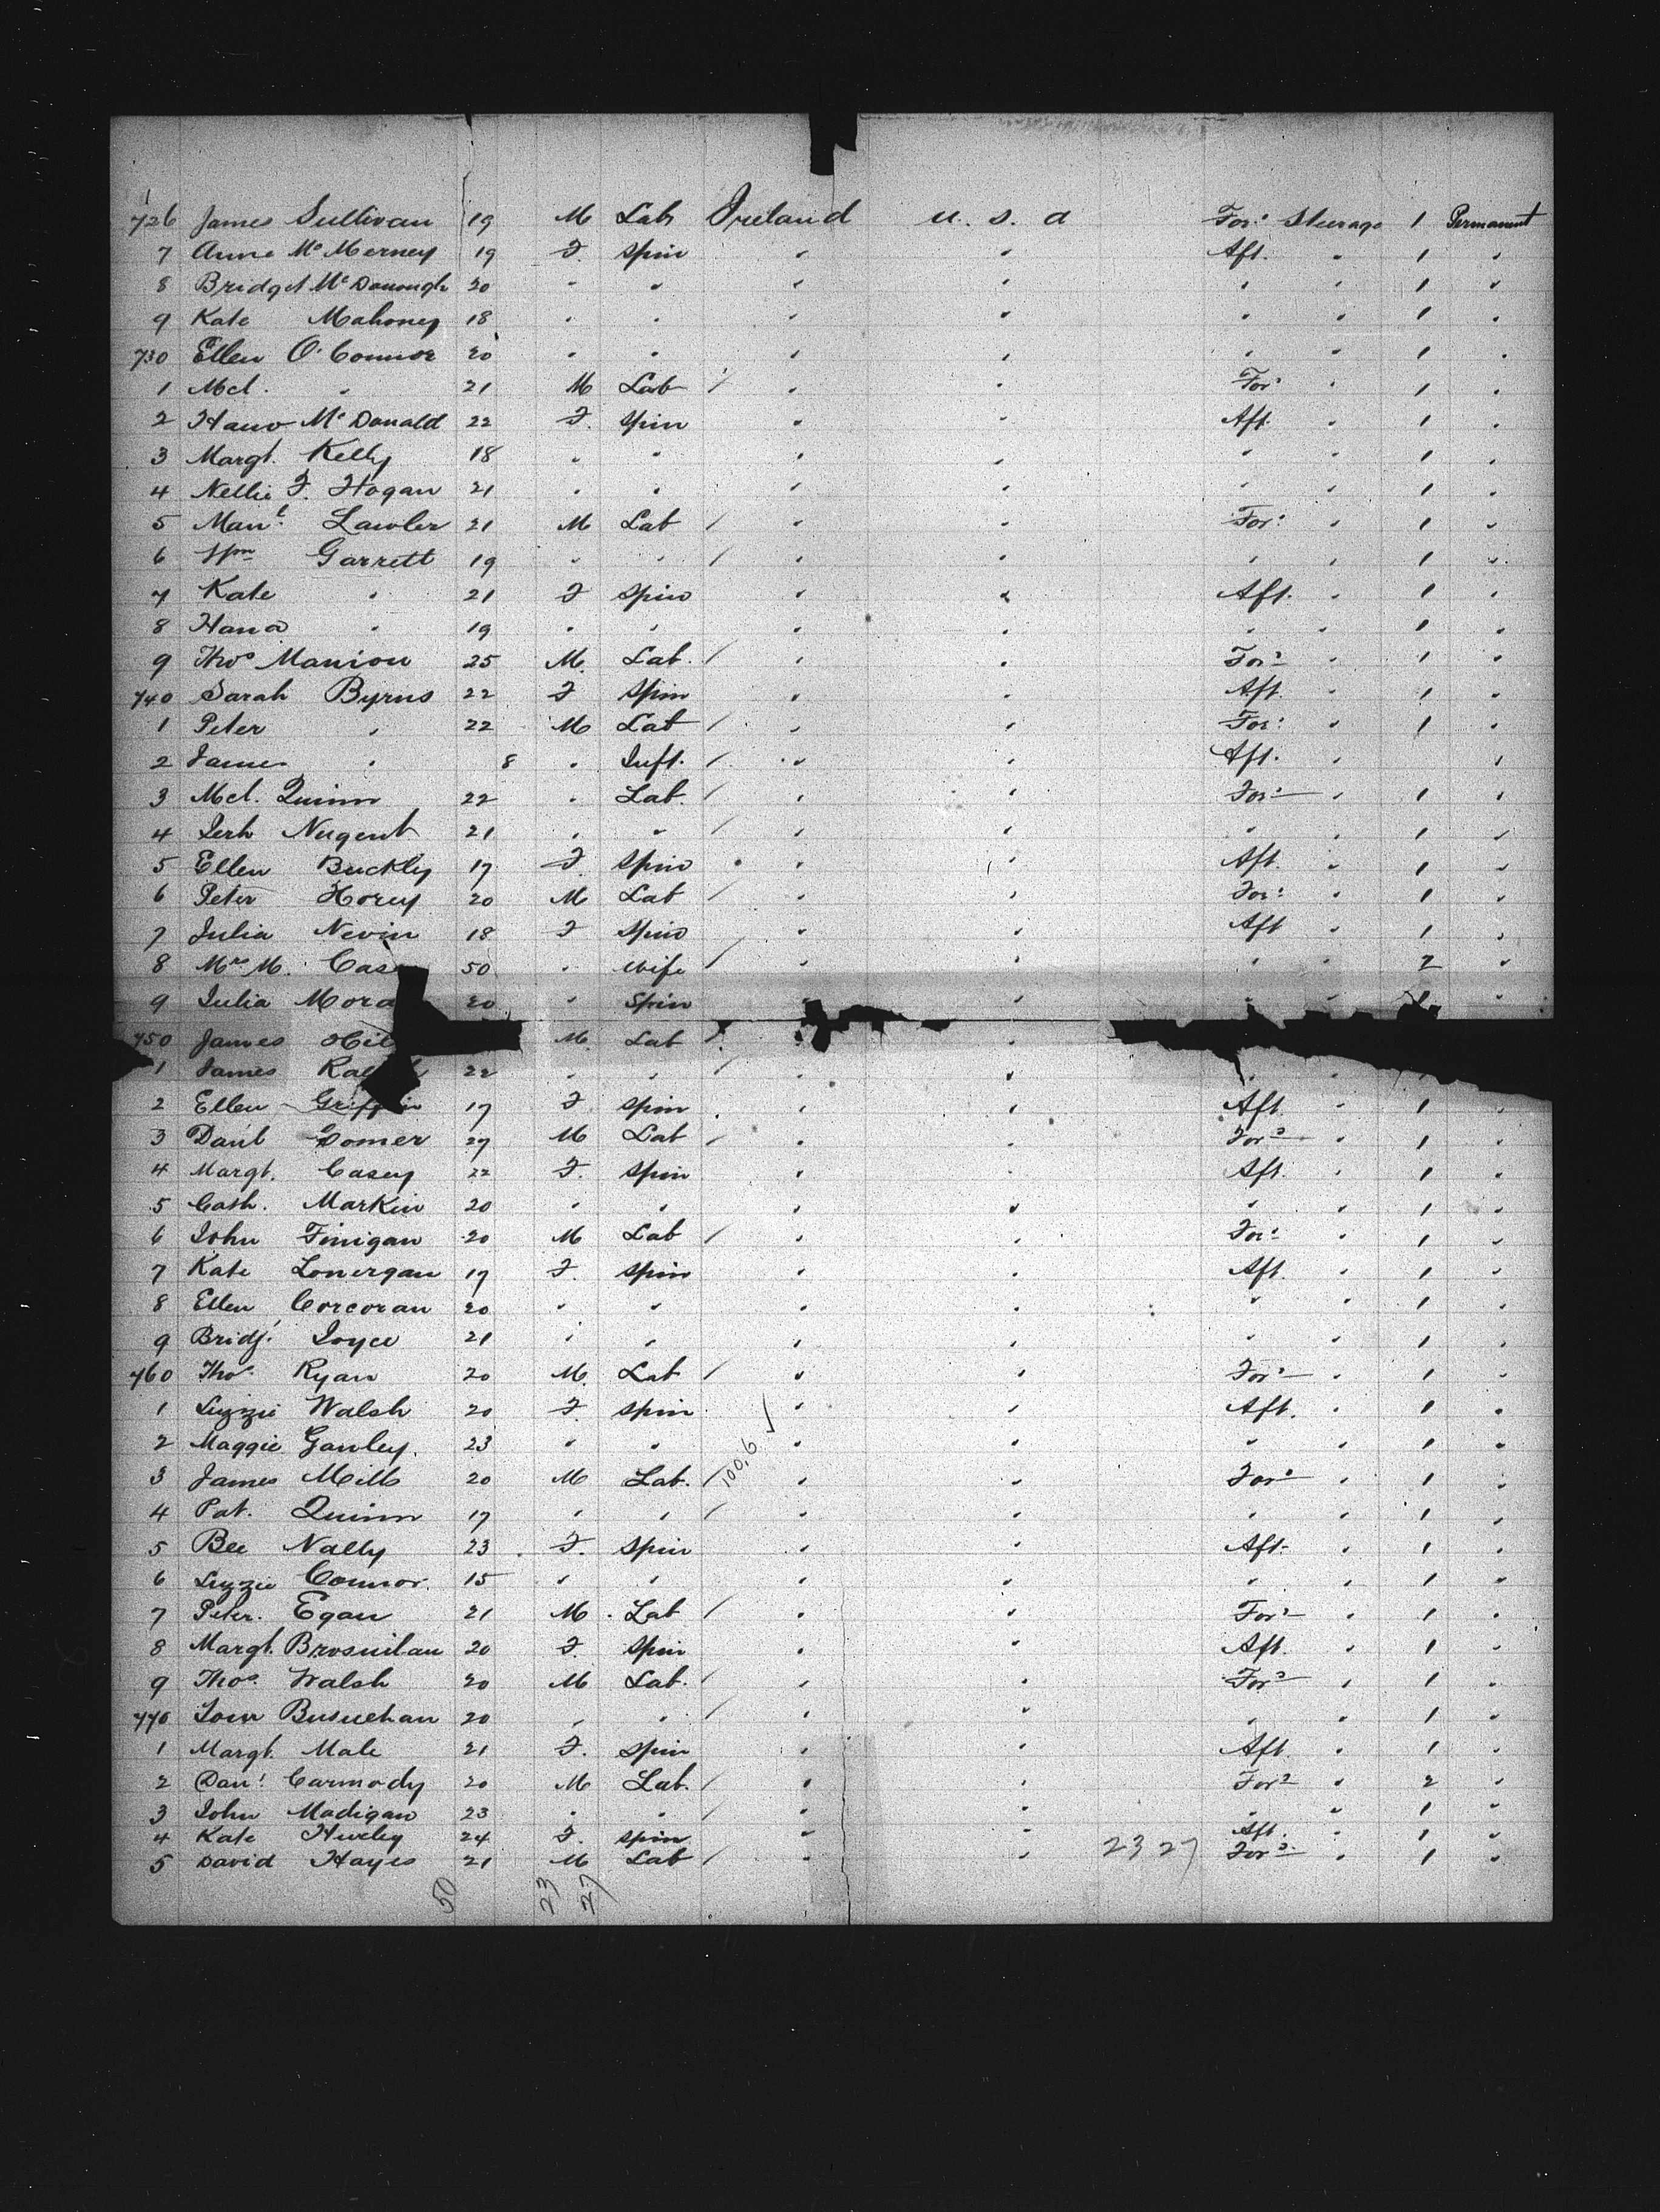 726 James Sullivan 19 M Lab Ireland U. S. A For: Steerage 1 Permanent
7 Anne McMerney 19 F. Spin " " Aft. " 1 "
8 Bridget McDonough 20 " " " " " " 1 "
9 Kate Mahoney 18 " " " " " " 1 "
730 Ellen O'Connor 20 " " " " " " 1 "
1 Mcl. " 21 M Lab / " " For: " 1 "
2 McDonald 22 F. Spin " " Aft. " 1 "
3 Margt. Kelly 18 " " " " " " 1 "
4 Nellie F. Hogan 21 " " " " " " 1 "
5 Lawler 21 M Lab / " " For: " 1 "
6 Wm Garrett 19 " " / " " " " 1 "
7 Kate " 21 F Spin " " Aft. " 1 "
8 Hana " 19 " " " " " " 1 "
9 Thos Manion 25 M. Lab. / " " For: " 1 "
740 Sarah Byrns 22 F Spin " " Aft. " 1 "
1 Peter " 22 M Lab / " " For: " 1 "
2 James " 8 " Inft. / " " Aft. " "
3 Mcl. Quinn 22 " Lab. / " " For: " 1 "
4 Jerh Nugent 21 " " / " " " " 1 "
5 Ellen Buckly 17 F. Spin " " Aft. " 1 "
6 Peter 20 M Lab / " " For: " 1 "
7 Julia Nevin 18 F Spin " " Aft " 1 "
8 Mrs M. Cas 50 " Wife / " " " " 2 "
9 Julia Mora 20 " Spin " " " " 1 "
750 James M. Lab / " "
1 James 22 " " / " " " "
2 Ellen Griffin 17 F. Spin " " Aft. " 1 "
3 Danl Comer 27 M Lab / " " For: " 1 "
4 Margt. Casey 22 F. Spin " " Aft. " 1 "
5 Cath. Markin 20 " " " " " " 1 "
6 John Finigan 20 M Lab / " " For: " 1 "
7 Kate Lonergan 17 F. Spin " " Aft. " 1 "
8 Ellen Corcoran 20 " " " " " " 1 "
9 Bridj. Joyce 21 " " " " " " 1 "
760 Thos. Ryan 20 M. Lab / " " For: " 1 "
1 Lizzie Walsh 20 F. Spin " " Aft. " 1 "
2 Maggie Gawley. 23 " " " " " " 1 "
3 James Mills 20 M Lab. / 100.6 ✓ " " For: " 1 "
4 Pat. Quinn 17 " " / " " " " 1 "
5 Bee Nally 23 F. Spin " " Aft. " 1 "
6 Lizzie Connor. 15 " " " " " " 1 "
7 Peter. Egan 21 M. Lab / " " For: " 1 "
8 Margt. Brosnihan 20 F. Spin " " Aft. " 1 "
9 Thos. Walsh 20 M Lab. / " " For: " 1 "
770 20 " " / " " " " 1 "
1 Margt. Male 21 F. Spin " " Aft. " 1 "
2 Danl Carmody 20 M Lab. / " " For: " 2 "
3 John Madigan 23 " " / " " " " 1 "
4 Kate Hurley 24 F. Spin " " Aft. " 1 "
5 David Hayes 21 M Lab / " " 23 27 For: " 1 "
50 23 27